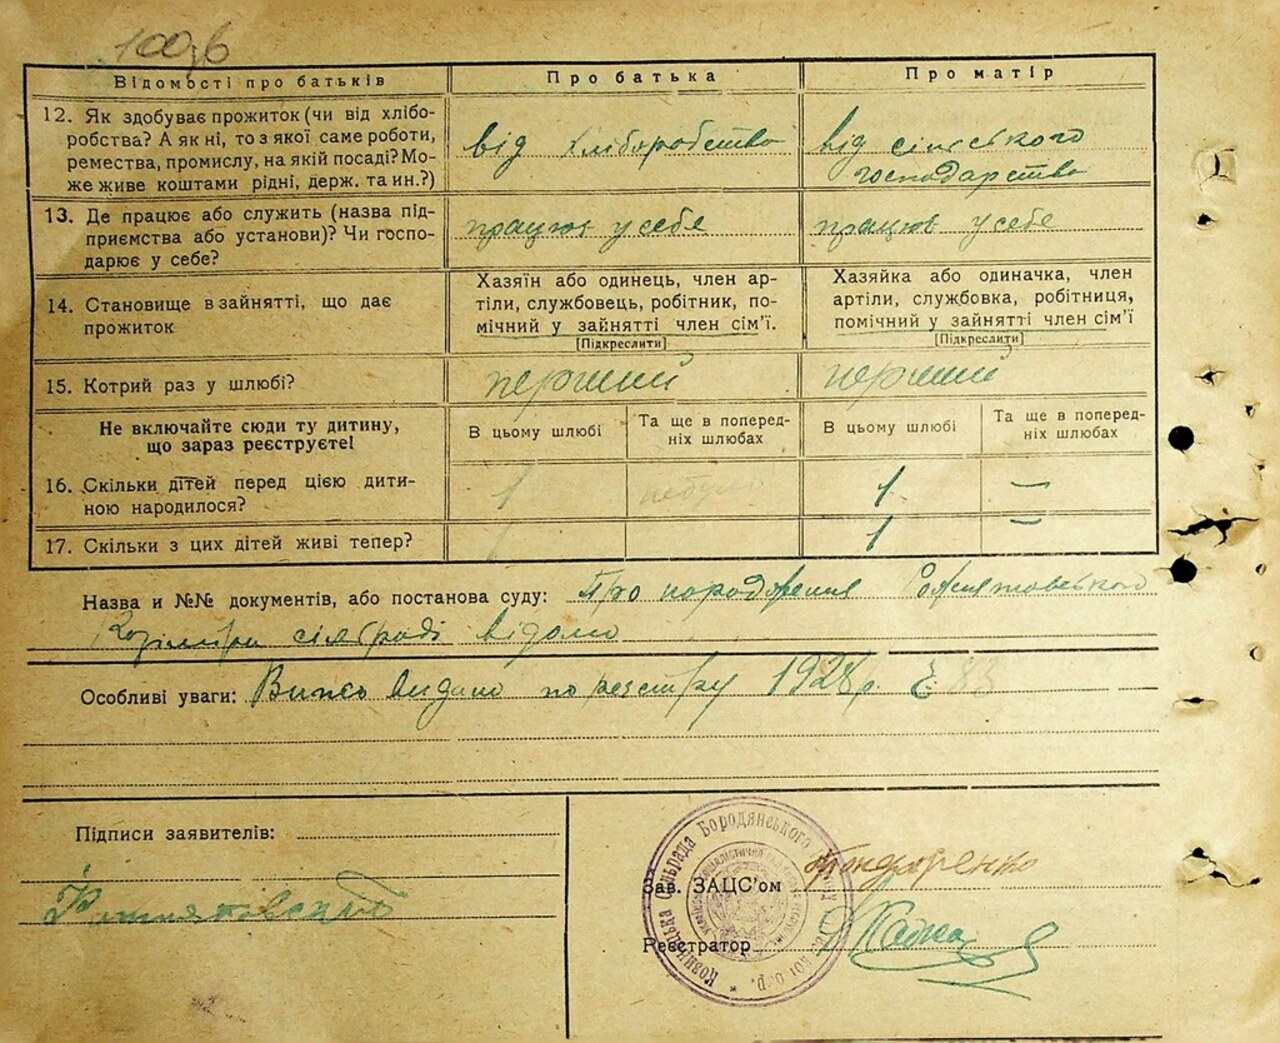 100зв
Відомості про батьків
Про батька
Про матір
12. Як здобуває прожиток (чи від хлібо-
робства? А як ні, то з якої саме роботи,
ремества, промислу, на якій посаді? Мо-
же живе коштами рідні, держ. та ин.?)
від хліборобства
від сільського
господарства
13. Де працює або служить (назва під-
приємства або установи)? Чи госпо-
дарює у себе?
працює у себе
працює у себе
14. Становище в зайнятті, що дає
прожиток
Хазяїн або одинець, член ар-
тіли, службовець, робітник, по-
мічний у зайнятті член сім'ї.
[Підкреслити]
Хазяйка або одиначка, член
артіли, службовка, робітниця,
помічний у зайнятті член сім'ї
[Підкреслити]
15. Котрий раз у шлюбі?
перший
перший
Не включайте сюди ту дитину,
що зараз реєструєте!
В цьому шлюбі
Та ще в поперед-
ніх шлюбах
В цьому шлюбі
Та ще в поперед-
ніх шлюбах
16. Скільки дітей перед цією дити-
ною народилося?
1
1
—
17. Скільки з цих дітей живі тепер?
1
—
Назва и №№ документів, або постанова суду: Про народження
сільраді відомо
Особливі уваги: Випис видано по реєстру 1928 р. 83
Підписи заявителів:
Зав. ЗАЦС'ом Бондаренко
Реєстратор
Козинецька Сільрада Бородянського